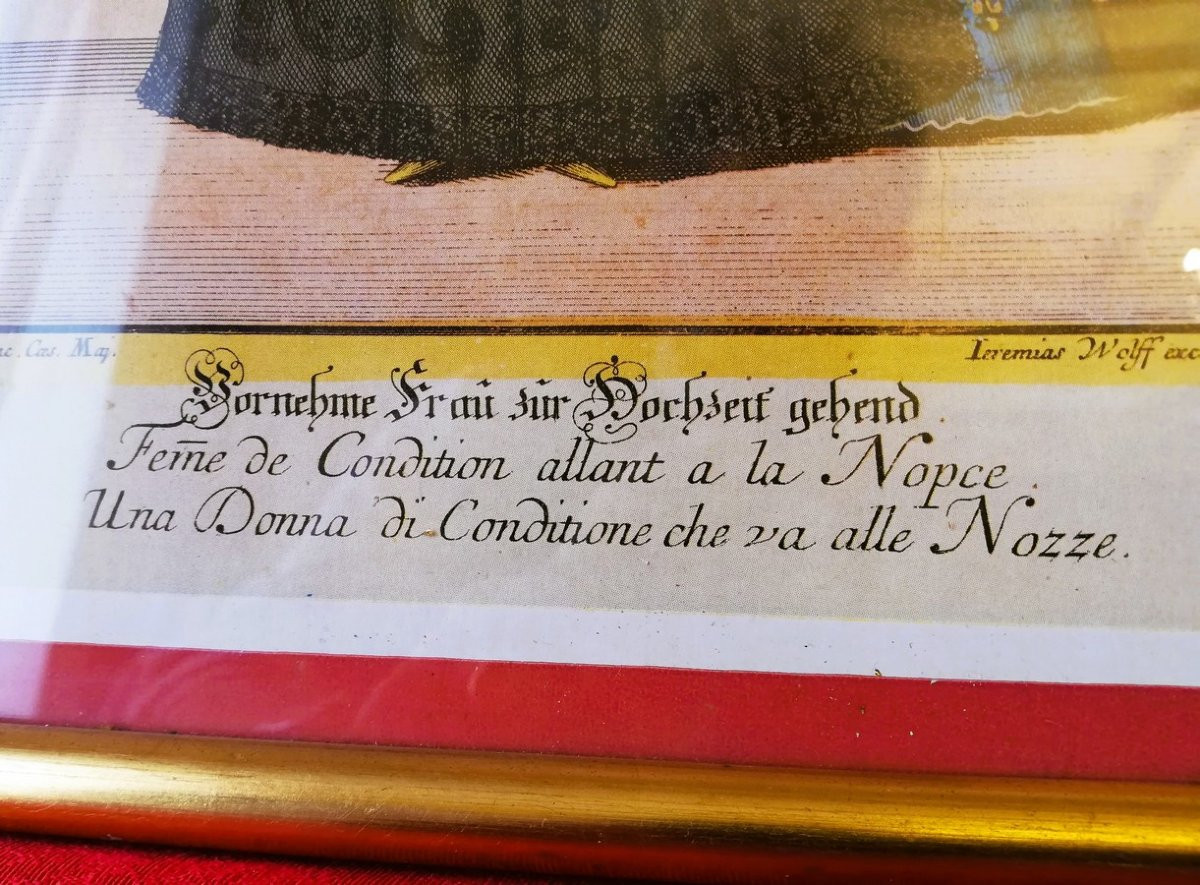 Cæs. Maj. Ieremias Wolff exc
Vornehme Fraŭ zŭr Hochzeit gehend.
Fem̅e de Condition allant a la Nopce.
Una Donna di Conditione che va alle Nozze.